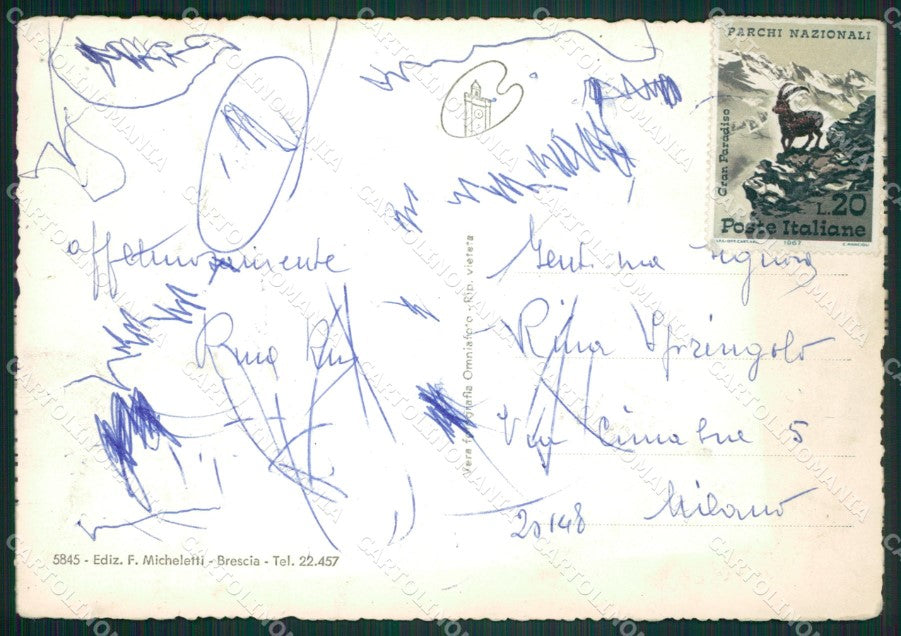 PARCHI NAZIONALI
Gran Paradiso
L.20
Poste Italiane
1967
affettuosamente
Rina
Gent.ma Signora
Rina Springolo
Via Cimabue 5
20148 Milano
Vera fotografia Omniafoto - Rip. vietata
5845 - Ediz. F. Micheletti - Brescia - Tel. 22.457
CARTOLINOMANIA